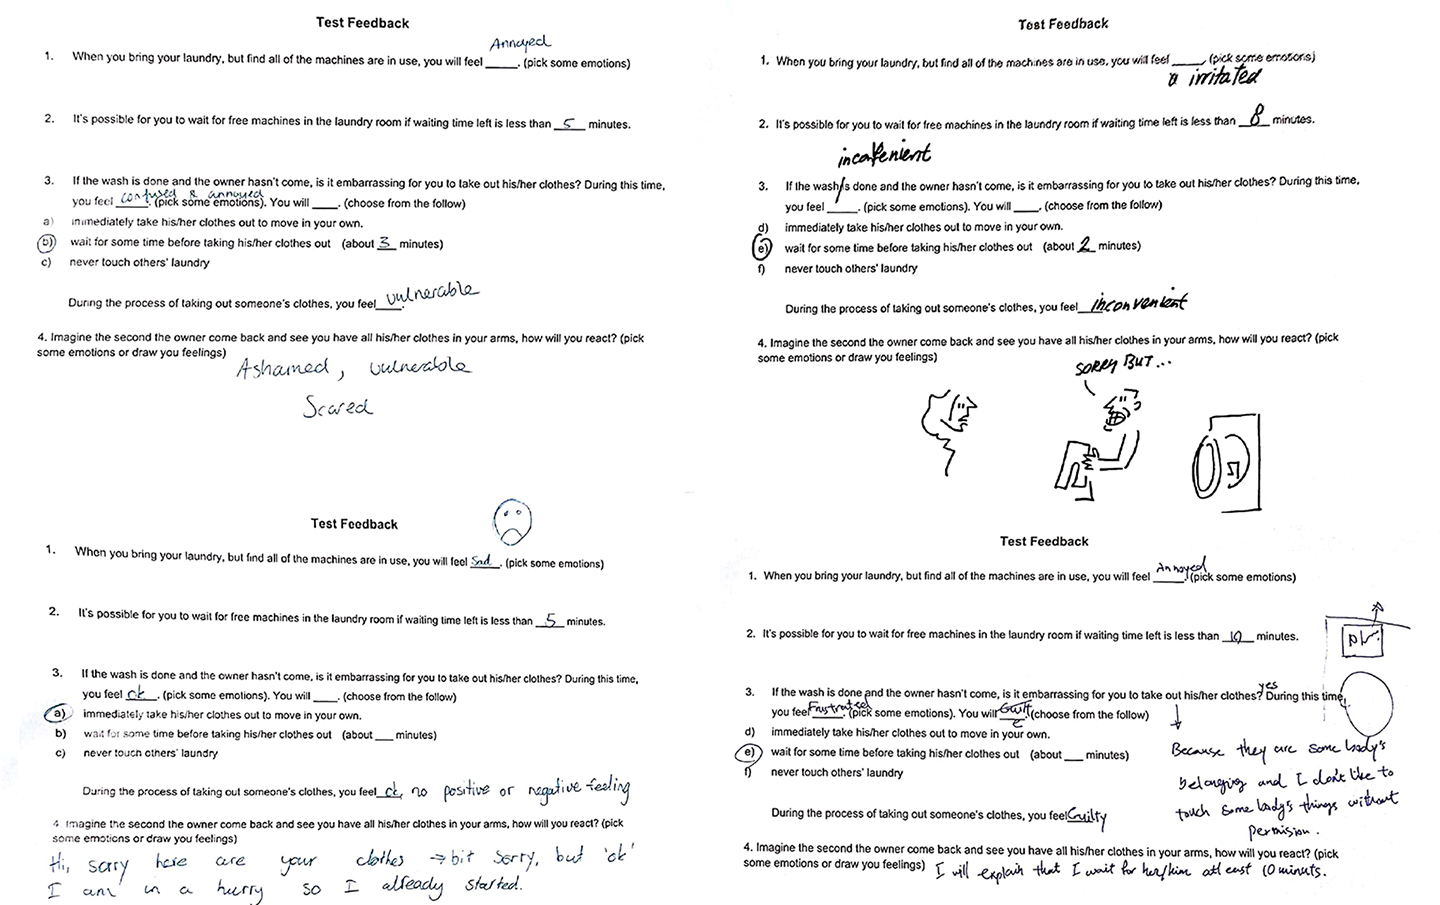 Test Feedback
Annoyed
1. When you bring your laundry, but find all of the machines are in use, you will feel _____. (pick some emotions)
2. It's possible for you to wait for free machines in the laundry room if waiting time left is less than 5 minutes.
3. If the wash is done and the owner hasn't come, is it embarrassing for you to take out his/her clothes? During this time,
confused & annoyed
you feel _____. (pick some emotions). You will ____. (choose from the follow)
a) immediately take his/her clothes out to move in your own.
b) wait for some time before taking his/her clothes out (about 3 minutes)
c) never touch others' laundry
During the process of taking out someone's clothes, you feel vulnerable
4. Imagine the second the owner come back and see you have all his/her clothes in your arms, how will you react? (pick
some emotions or draw you feelings)
Ashamed, vulnerable
Scared
Test Feedback
1. When you bring your laundry, but find all of the machines are in use, you will feel _____. (pick some emotions)
irritated
2. It's possible for you to wait for free machines in the laundry room if waiting time left is less than 8 minutes.
3. If the wash is done and the owner hasn't come, is it embarrassing for you to take out his/her clothes? During this time,
you feel _____. (pick some emotions). You will ____. (choose from the follow)
d) immediately take his/her clothes out to move in your own.
e) wait for some time before taking his/her clothes out (about 2 minutes)
f) never touch others' laundry
During the process of taking out someone's clothes, you feel inconvenient
4. Imagine the second the owner come back and see you have all his/her clothes in your arms, how will you react? (pick
some emotions or draw you feelings)
SORRY BUT...
Test Feedback
1. When you bring your laundry, but find all of the machines are in use, you will feel Sad. (pick some emotions)
2. It's possible for you to wait for free machines in the laundry room if waiting time left is less than 5 minutes.
3. If the wash is done and the owner hasn't come, is it embarrassing for you to take out his/her clothes? During this time,
you feel ok. (pick some emotions). You will ____. (choose from the follow)
a) immediately take his/her clothes out to move in your own.
b) wait for some time before taking his/her clothes out (about ___ minutes)
c) never touch others' laundry
During the process of taking out someone's clothes, you feel ok, no positive or negative feeling
4 Imagine the second the owner come back and see you have all his/her clothes in your arms, how will you react? (pick
some emotions or draw you feelings)
Hi, sorry here are your clothes → bit sorry, but 'ok'
I am in a hurry so I already started.
Test Feedback
Annoyed
1. When you bring your laundry, but find all of the machines are in use, you will feel _____. (pick some emotions)
2. It's possible for you to wait for free machines in the laundry room if waiting time left is less than 10 minutes.
yes
3. If the wash is done and the owner hasn't come, is it embarrassing for you to take out his/her clothes? During this time,
Frustrated
you feel _____. (pick some emotions). You will ____. (choose from the follow)
d) immediately take his/her clothes out to move in your own.
e) wait for some time before taking his/her clothes out (about ___ minutes)
f) never touch others' laundry
Because they are some body's
belonging and I don't like to
touch some body's things without
permision.
During the process of taking out someone's clothes, you feel Guilty
4. Imagine the second the owner come back and see you have all his/her clothes in your arms, how will you react? (pick
some emotions or draw you feelings) I will explain that I wait for her/him atleast 10 minuts.